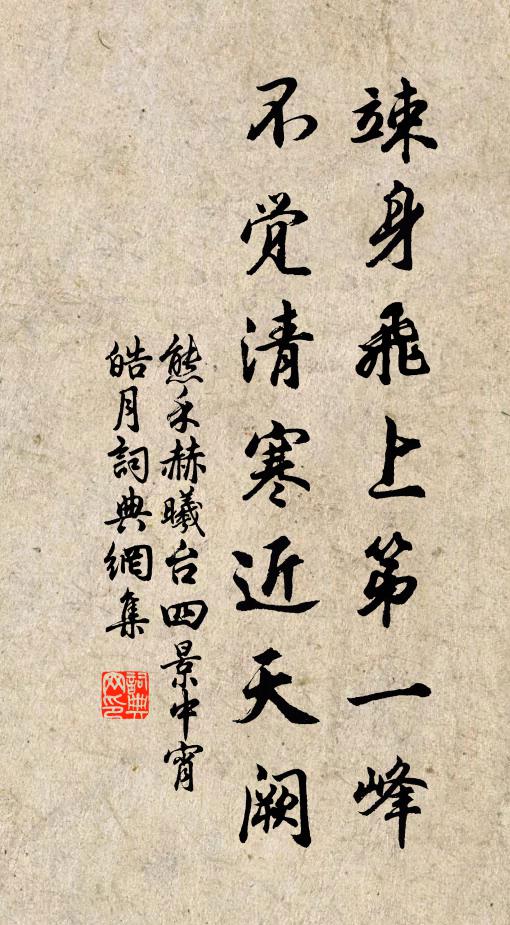 竦身飛上第一峰
不覺清寒近天闕
熊禾赫曦台四景中宵
皓月詞典網集
詞典網印